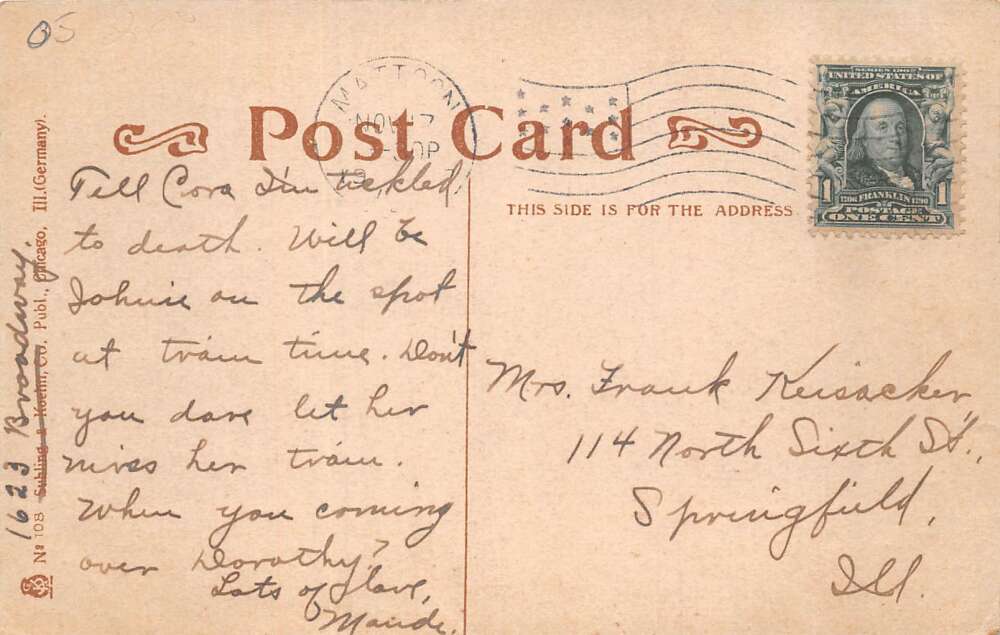 05
MATTOON
NOV 17
Post Card
THIS SIDE IS FOR THE ADDRESS
SERIES 1902
UNITED STATES OF
AMERICA
1
1706 FRANKLIN 1790
POSTAGE
ONE CENT
Tell Cora I'm tickled
to death. Will be
Johnie on the spot
at train time. Don't
you dare let her
miss her train.
When you coming
over Dorothy?
Lots of love,
Maude.
Mrs. Frank Keisacker,
114 North Sixth St.,
Springfield,
Ill.
1623 Broadway,
No 108 Co. Publ., Chicago, Ill. (Germany).